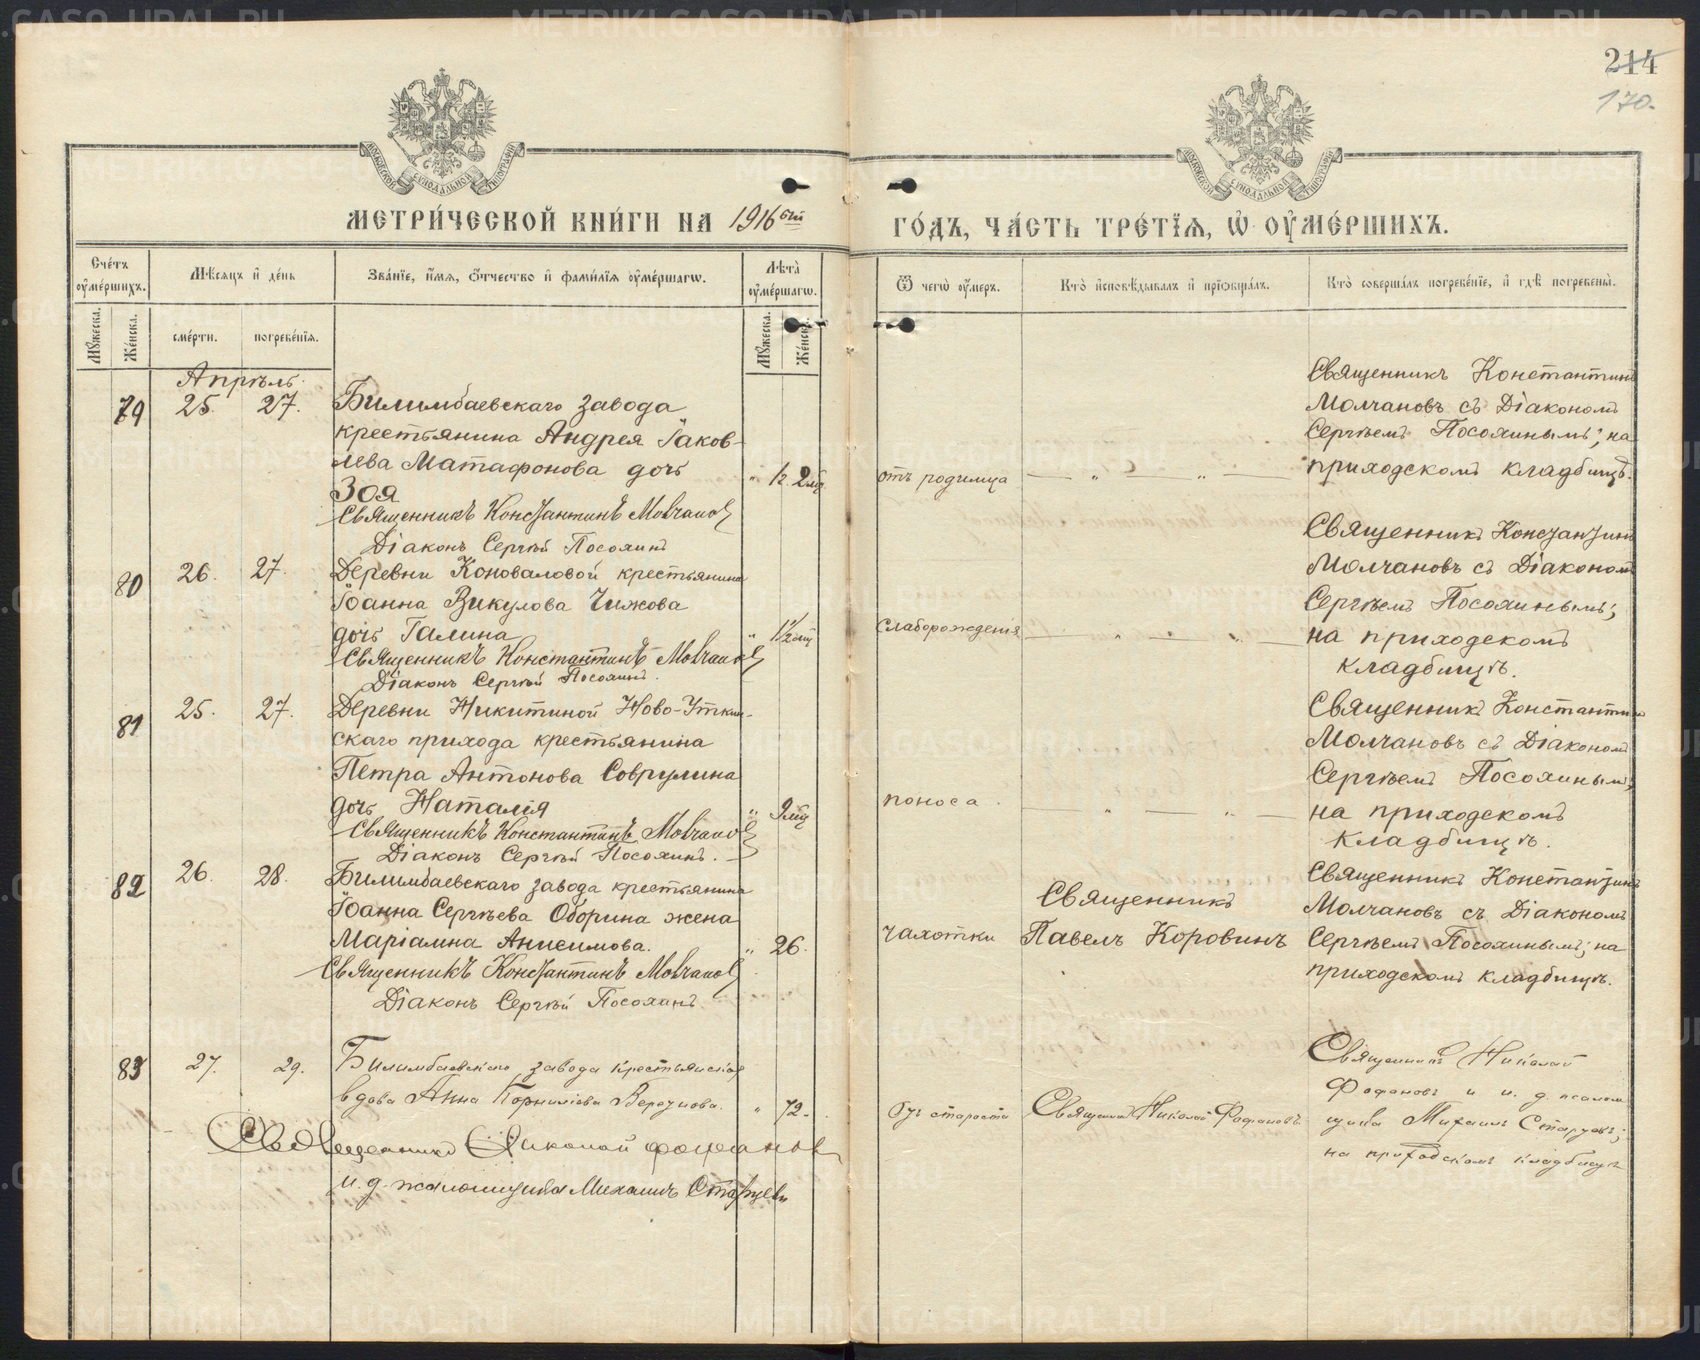 214
170.
МЕТРИ́ЧЕСКОЙ КНИ́ГИ НА 1916 бый
ГО́ДЪ, ЧА́СТЬ ТРЕ́ТЇѦ, Ѡ҆ ОУ҆МЕ́РШИХЪ.
МОСКОВСКОЙ СѴНОДАЛЬНОЙ ТѴПОГРАФІИ
МОСКОВСКОЙ СѴНОДАЛЬНОЙ ТѴПОГРАФІИ
Сче́тъ оу҆ме́ршихъ.
Мѣ́сяцъ и҆ де́нь
Зва́нїе, и҆́мя, ѻ҆́тчество и҆ фами́лїя оу҆ме́ршагѡ.
Лѣ́та оу҆ме́ршагѡ.
Ѿ чегѡ̀ оу҆́меръ.
Кто̀ и҆сповѣ́дывалъ и҆ прїѡбща́лъ.
Кто̀ соверша́лъ погребе́нїе, и҆ гдѣ̀ погребены̀.
Мꙋ́жеска.
Же́нска.
сме́рти.
погребе́нїя.
Мꙋ́жеска.
Же́нска.
Апрѣль
79 25. 27. Билимбаевскаго завода
крестьянина Андрея Іаков-
лева Матафонова дочь
Зоя
Священникъ Константинъ Молчановъ
Діаконъ Сергѣй Посохинъ
отъ родимца
Священникъ Константинъ
Молчановъ съ Діакономъ
Сергѣемъ Посохинымъ; на
приходскомъ кладбищѣ.
80 26. 27. Деревни Коноваловой крестьянина
Іоанна Викулова Чижова
дочь Галина
Священникъ Константинъ Молчановъ
Діаконъ Сергѣй Посохинъ.
слаборожденія
Священникъ Константинъ
Молчановъ съ Діакономъ
Сергѣемъ Посохинымъ;
на приходскомъ
кладбищѣ.
81 25. 27. Деревни Никитиной Ново-Уткин-
скаго прихода крестьянина
Петра Антонова Соврулина
дочь Наталія
Священникъ Константинъ Молчановъ
Діаконъ Сергѣй Посохинъ.
" 2 мѣс
поноса.
Священникъ Константинъ
Молчановъ съ Діакономъ
Сергѣемъ Посохинымъ;
на приходскомъ
кладбищѣ.
82 26. 28. Билимбаевскаго завода крестьянина
Іоанна Сергѣева Оборина жена
Маріамна Анисимова.
Священникъ Константинъ Молчановъ
Діаконъ Сергѣй Посохинъ.
" 26.
чахотки
Священникъ
Павелъ Коровинъ
Священникъ Константинъ
Молчановъ съ Діакономъ
Сергѣемъ Посохинымъ; на
приходскомъ кладбищѣ.
83 27. 29. Билимбаевскаго завода крестьянская
вдова Анна Корнилієва
" 72.
Отъ старости
Священникъ Николай Фофановъ
Священникъ Николай
Фофановъ и и. д. псалом
щика Михаилъ Старцевъ;
на приходскомъ кладбищѣ
Священникъ Николай Фофановъ
и. д. псаломщика Михаилъ Старцевъ